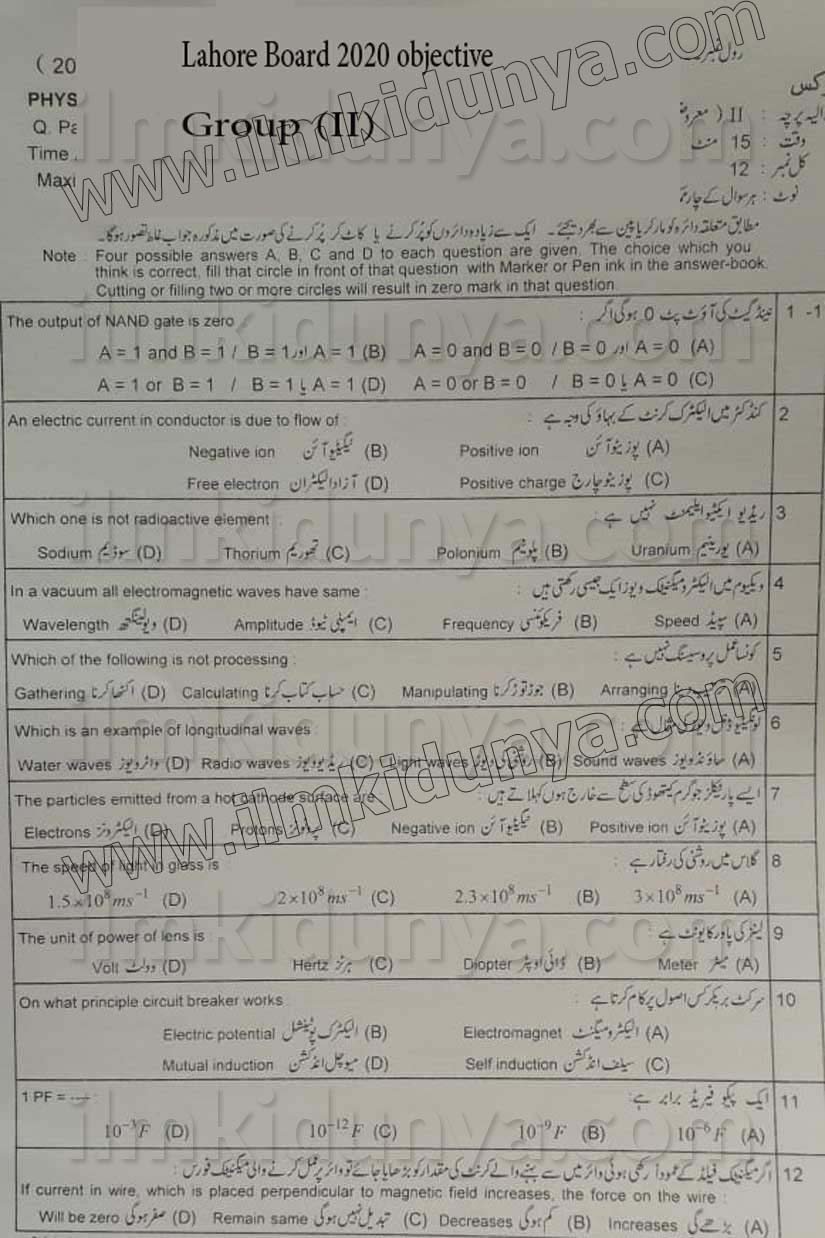 Lahore Board 2020 objective
رول نمبر
( 20
Group (II)
PHYS
Q. Pa
: II ( معروضی
Time
وقت : 15 منٹ
Maxi
کل نمبر : 12
نوٹ : ہر سوال کے چار
مطابق متعلقہ دائرہ کو مارکر یا پین سے بھر دیجئے۔ ایک سے زیادہ دائروں کو پُر کرنے یا کاٹ کر پُر کرنے کی صورت میں مذکورہ جواب غلط تصور ہوگا۔
Note : Four possible answers A, B, C and D to each question are given. The choice which you
think is correct, fill that circle in front of that question with Marker or Pen ink in the answer-book.
Cutting or filling two or more circles will result in zero mark in that question.
The output of NAND gate is zero نینڈ گیٹ کی آؤٹ پٹ 0 ہوگی اگر : 1 -1
A = 1 and B = 1 / B = 1 اور A = 1 (B) A = 0 and B = 0 / B = 0 اور A = 0 (A)
A = 1 or B = 1 / B = 1 یا A = 1 (D) A = 0 or B = 0 / B = 0 یا A = 0 (C)
An electric current in conductor is due to flow of : کنڈکٹر میں الیکٹرک کرنٹ کے بہاؤ کی وجہ ہے : 2
Negative ion نیگیٹیو آئن (B) Positive ion پوزیٹو آئن (A)
Free electron آزاد الیکٹران (D) Positive charge پوزیٹو چارج (C)
Which one is not radioactive element : ریڈیو ایکٹیو ایلیمنٹ نہیں ہے : 3
Sodium سوڈیم (D) Thorium تھوریم (C) Polonium پلونیم (B) Uranium یورینیم (A)
In a vacuum all electromagnetic waves have same : ویکیوم میں الیکٹرومیگنیٹک ویوز ایک جیسی رکھتی ہیں : 4
Wavelength ویولینگتھ (D) Amplitude ایمپلی ٹیوڈ (C) Frequency فریکوئنسی (B) Speed سپیڈ (A)
Which of the following is not processing : کونسا عمل پروسیسنگ نہیں ہے : 5
Gathering اکٹھا کرنا (D) Calculating حساب کتاب کرنا (C) Manipulating جوڑ توڑ کرنا (B) Arranging ترتیب دینا (A)
Which is an example of longitudinal waves : لونگیٹیوڈنل ویوز کی مثال ہے : 6
Water waves واٹر ویوز (D) Radio waves ریڈیو ویوز (C) Light waves روشنی کی ویوز (B) Sound waves ساؤنڈ ویوز (A)
The particles emitted from a hot cathode surface are : ایسے پارٹیکلز جو گرم کیتھوڈ کی سطح سے خارج ہوں کہلاتے ہیں : 7
Electrons الیکٹرونز (D) Protons پروٹونز (C) Negative ion نیگیٹیو آئن (B) Positive ion پوزیٹو آئن (A)
The speed of light in glass is گلاس میں روشنی کی رفتار ہے : 8
1.5×10⁸ms⁻¹ (D) 2×10⁸ms⁻¹ (C) 2.3×10⁸ms⁻¹ (B) 3×10⁸ms⁻¹ (A)
The unit of power of lens is : لینز کی پاور کا یونٹ ہے : 9
Volt وولٹ (D) Hertz ہرٹز (C) Diopter ڈائی اوپٹر (B) Meter میٹر (A)
On what principle circuit breaker works : سرکٹ بریکر کس اصول پر کام کرتا ہے : 10
Electric potential الیکٹرک پوٹینشل (B) Electromagnet الیکٹرومیگنٹ (A)
Mutual induction میوچل انڈکشن (D) Self induction سیلف انڈکشن (C)
1 PF = ---- : ایک پیکو فیرڈ برابر ہے : 11
10⁻³F (D) 10⁻¹²F (C) 10⁻⁹F (B) 10⁻⁶F (A)
اگر میگنیٹک فیلڈ کے عموداً رکھی ہوئی وائر میں سے بہنے والے کرنٹ کی مقدار کو بڑھایا جائے تو وائر پر عمل کرنے والی میگنیٹک فورس : 12
If current in wire, which is placed perpendicular to magnetic field increases, the force on the wire :
Will be zero صفر ہوگی (D) Remain same تبدیل نہیں ہوگی (C) Decreases کم ہوگی (B) Increases بڑھے گی (A)
www.ilmkidunya.com
www.ilmkidunya.com
ilmkidunya.com
ilmkidunya.com
ilmkidunya.com
ilmkidunya.com
ilmkidunya.com
ilmkidunya.com